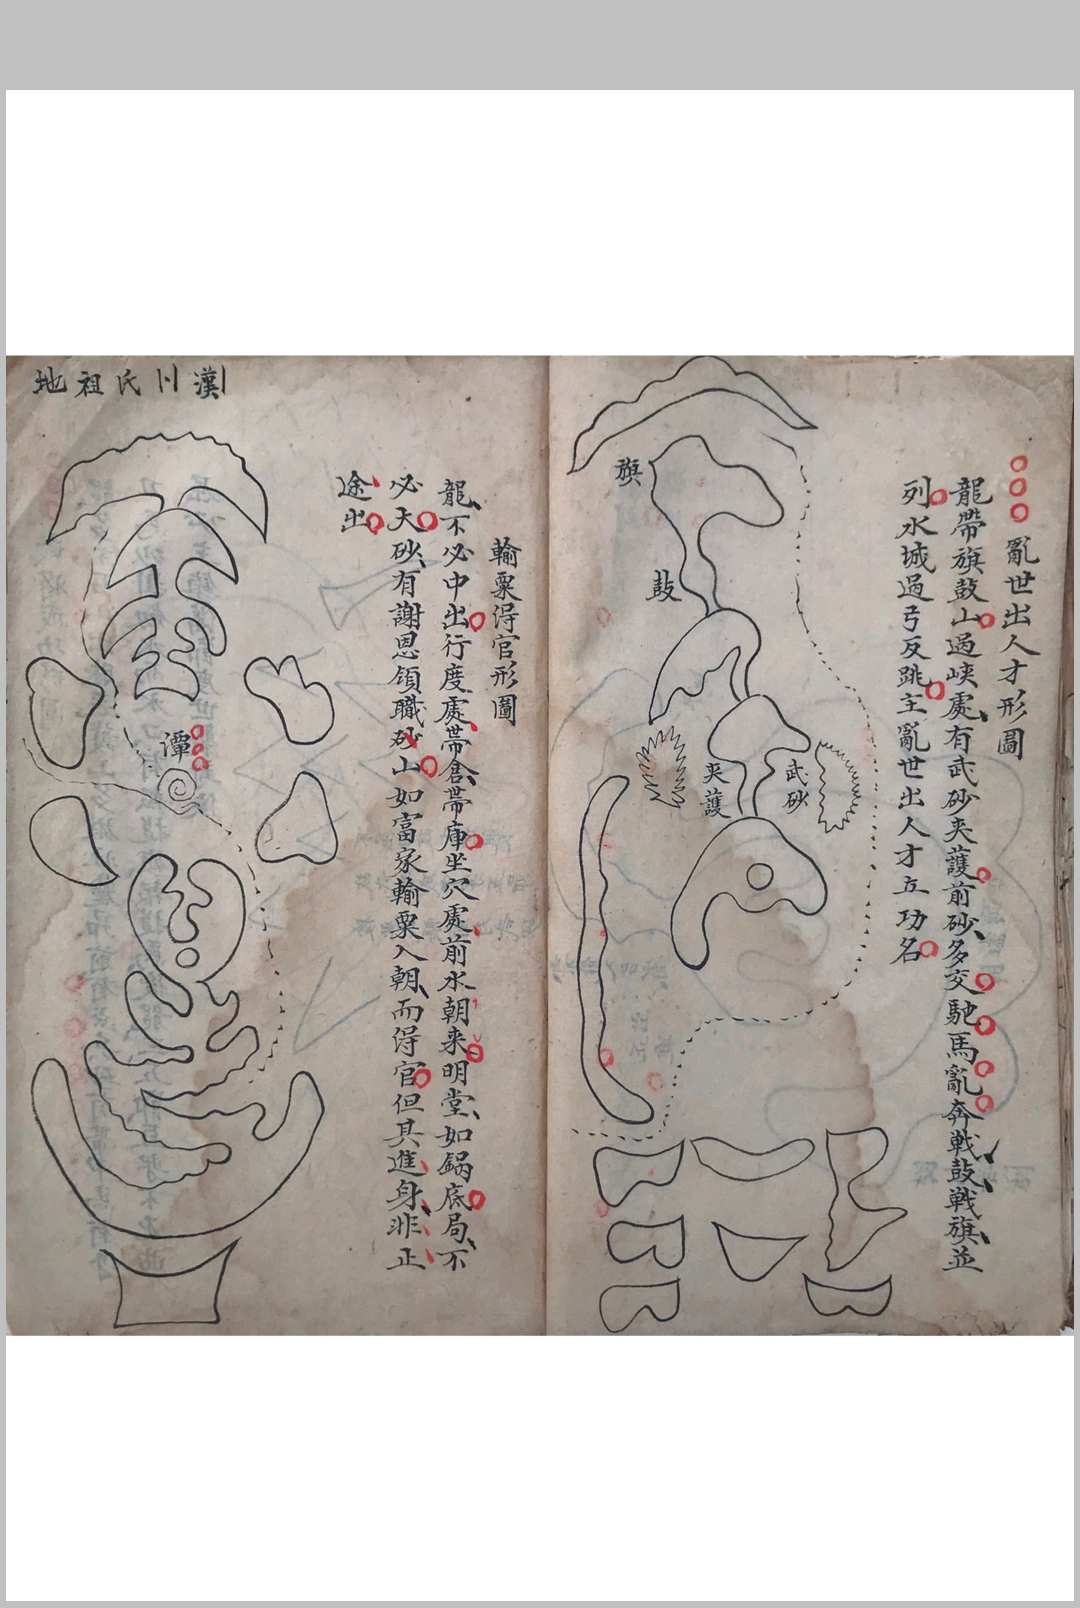 亂世出人才形圖
龍帶旗鼓山過峽處有武砂夾護前砂多交馳馬亂奔戰鼓戰旗並
列水城過弓反跳主亂世出人才立功名
旗
鼓
夾護
武砂
輸粟得官形圖
龍不必中出行度處帶倉帶庫坐穴處前水朝来明堂如鍋底局不
必大砂有謝恩領職砂山如富家輸粟入朝而得官但其進身非正
途出
潭
漢川氏祖地